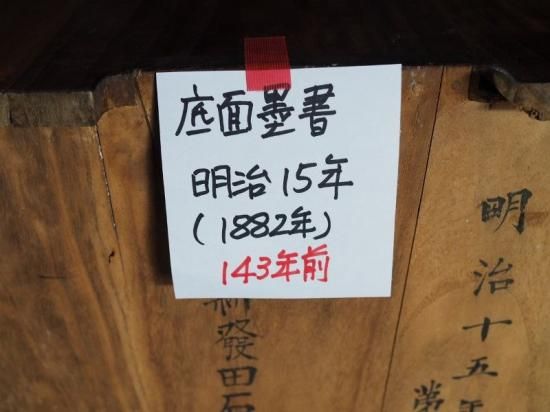 底面墨書
明治15年
(1882年)
143年前
明治十五年
新發田